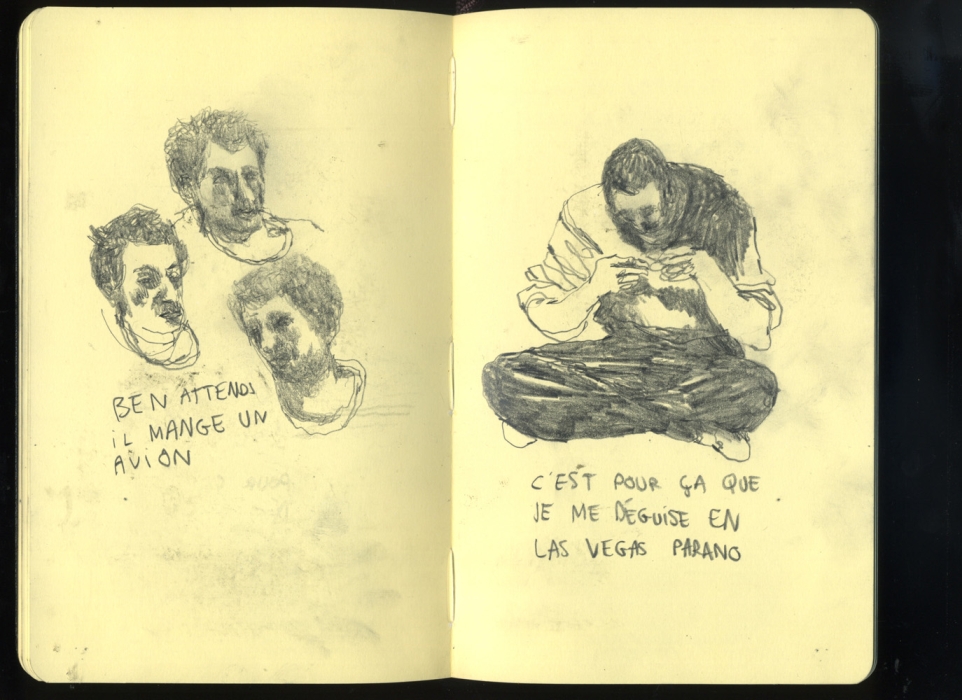 BEN ATTENDS
iL MANGE UN
AViON
C'EST POUR ÇA QUE
JE ME DÉGUISE EN
LAS VEGAS PARANO